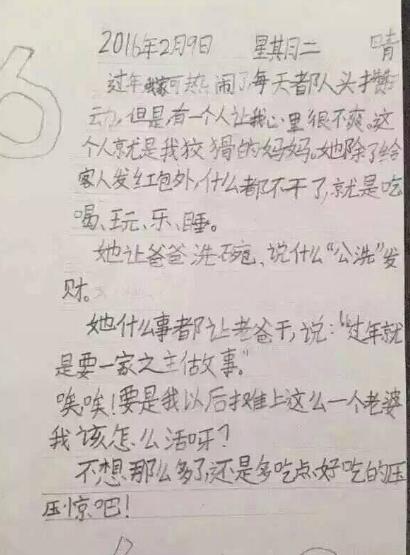 2016年2月9日 星期二 晴
过年我家可热闹了,每天都人头攒
动,但是,有一个人让我心里很不爽。这
个人就是我狡猾的妈妈。她除了给
客人发红包外,什么都不干了,就是吃
喝、玩、乐、睡。
她让爸爸洗碗、说什么“公洗”发
财。
她什么事都让老爸干,说:“过年就
是要一家之主做事。”
唉,唉!要是我以后摊上这么一个老婆
我该怎么活呀?
不想那么多了,还是多吃点好吃的压
压惊吧!